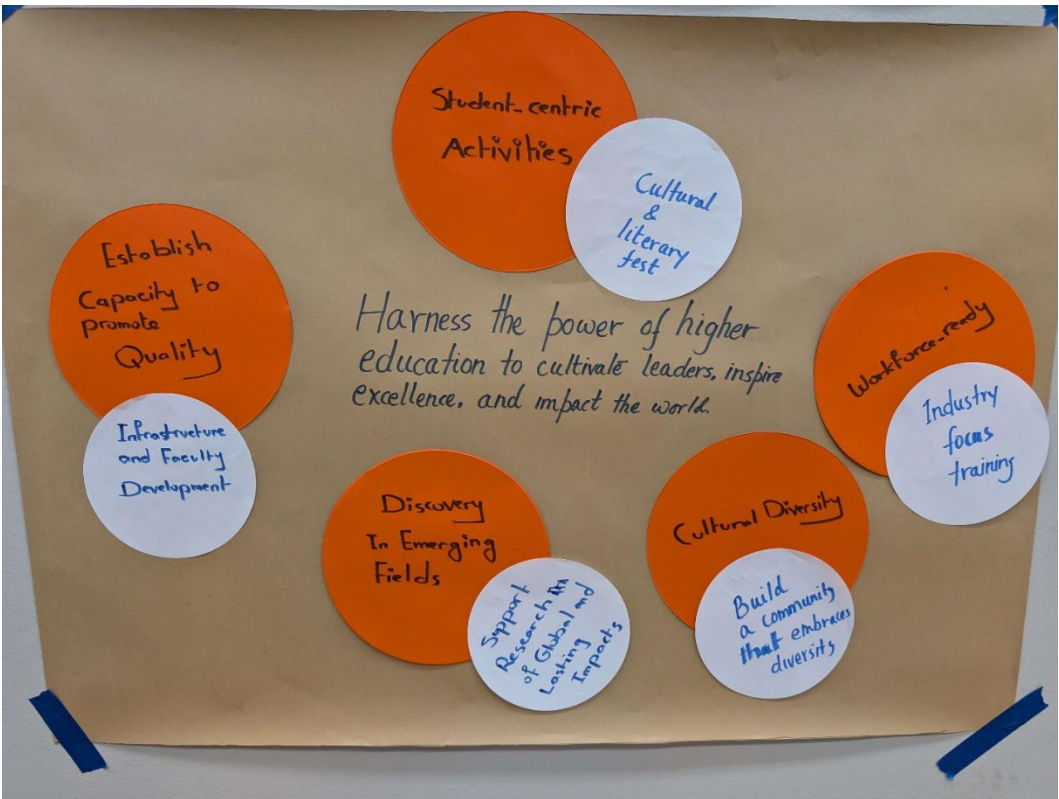 Student-centric
Activities
Cultural
&
literary
fest
Establish
Capacity to
promote
Quality
Infrastructure
and Faculty
Development
Harness the power of higher
education to cultivate leaders, inspire
excellence, and impact the world.
Workforce-ready
Industry
focus
training
Discovery
In Emerging
Fields
Support
Research
of Global and
Lasting
Impacts
Cultural Diversity
Build
a community
that embraces
diversits